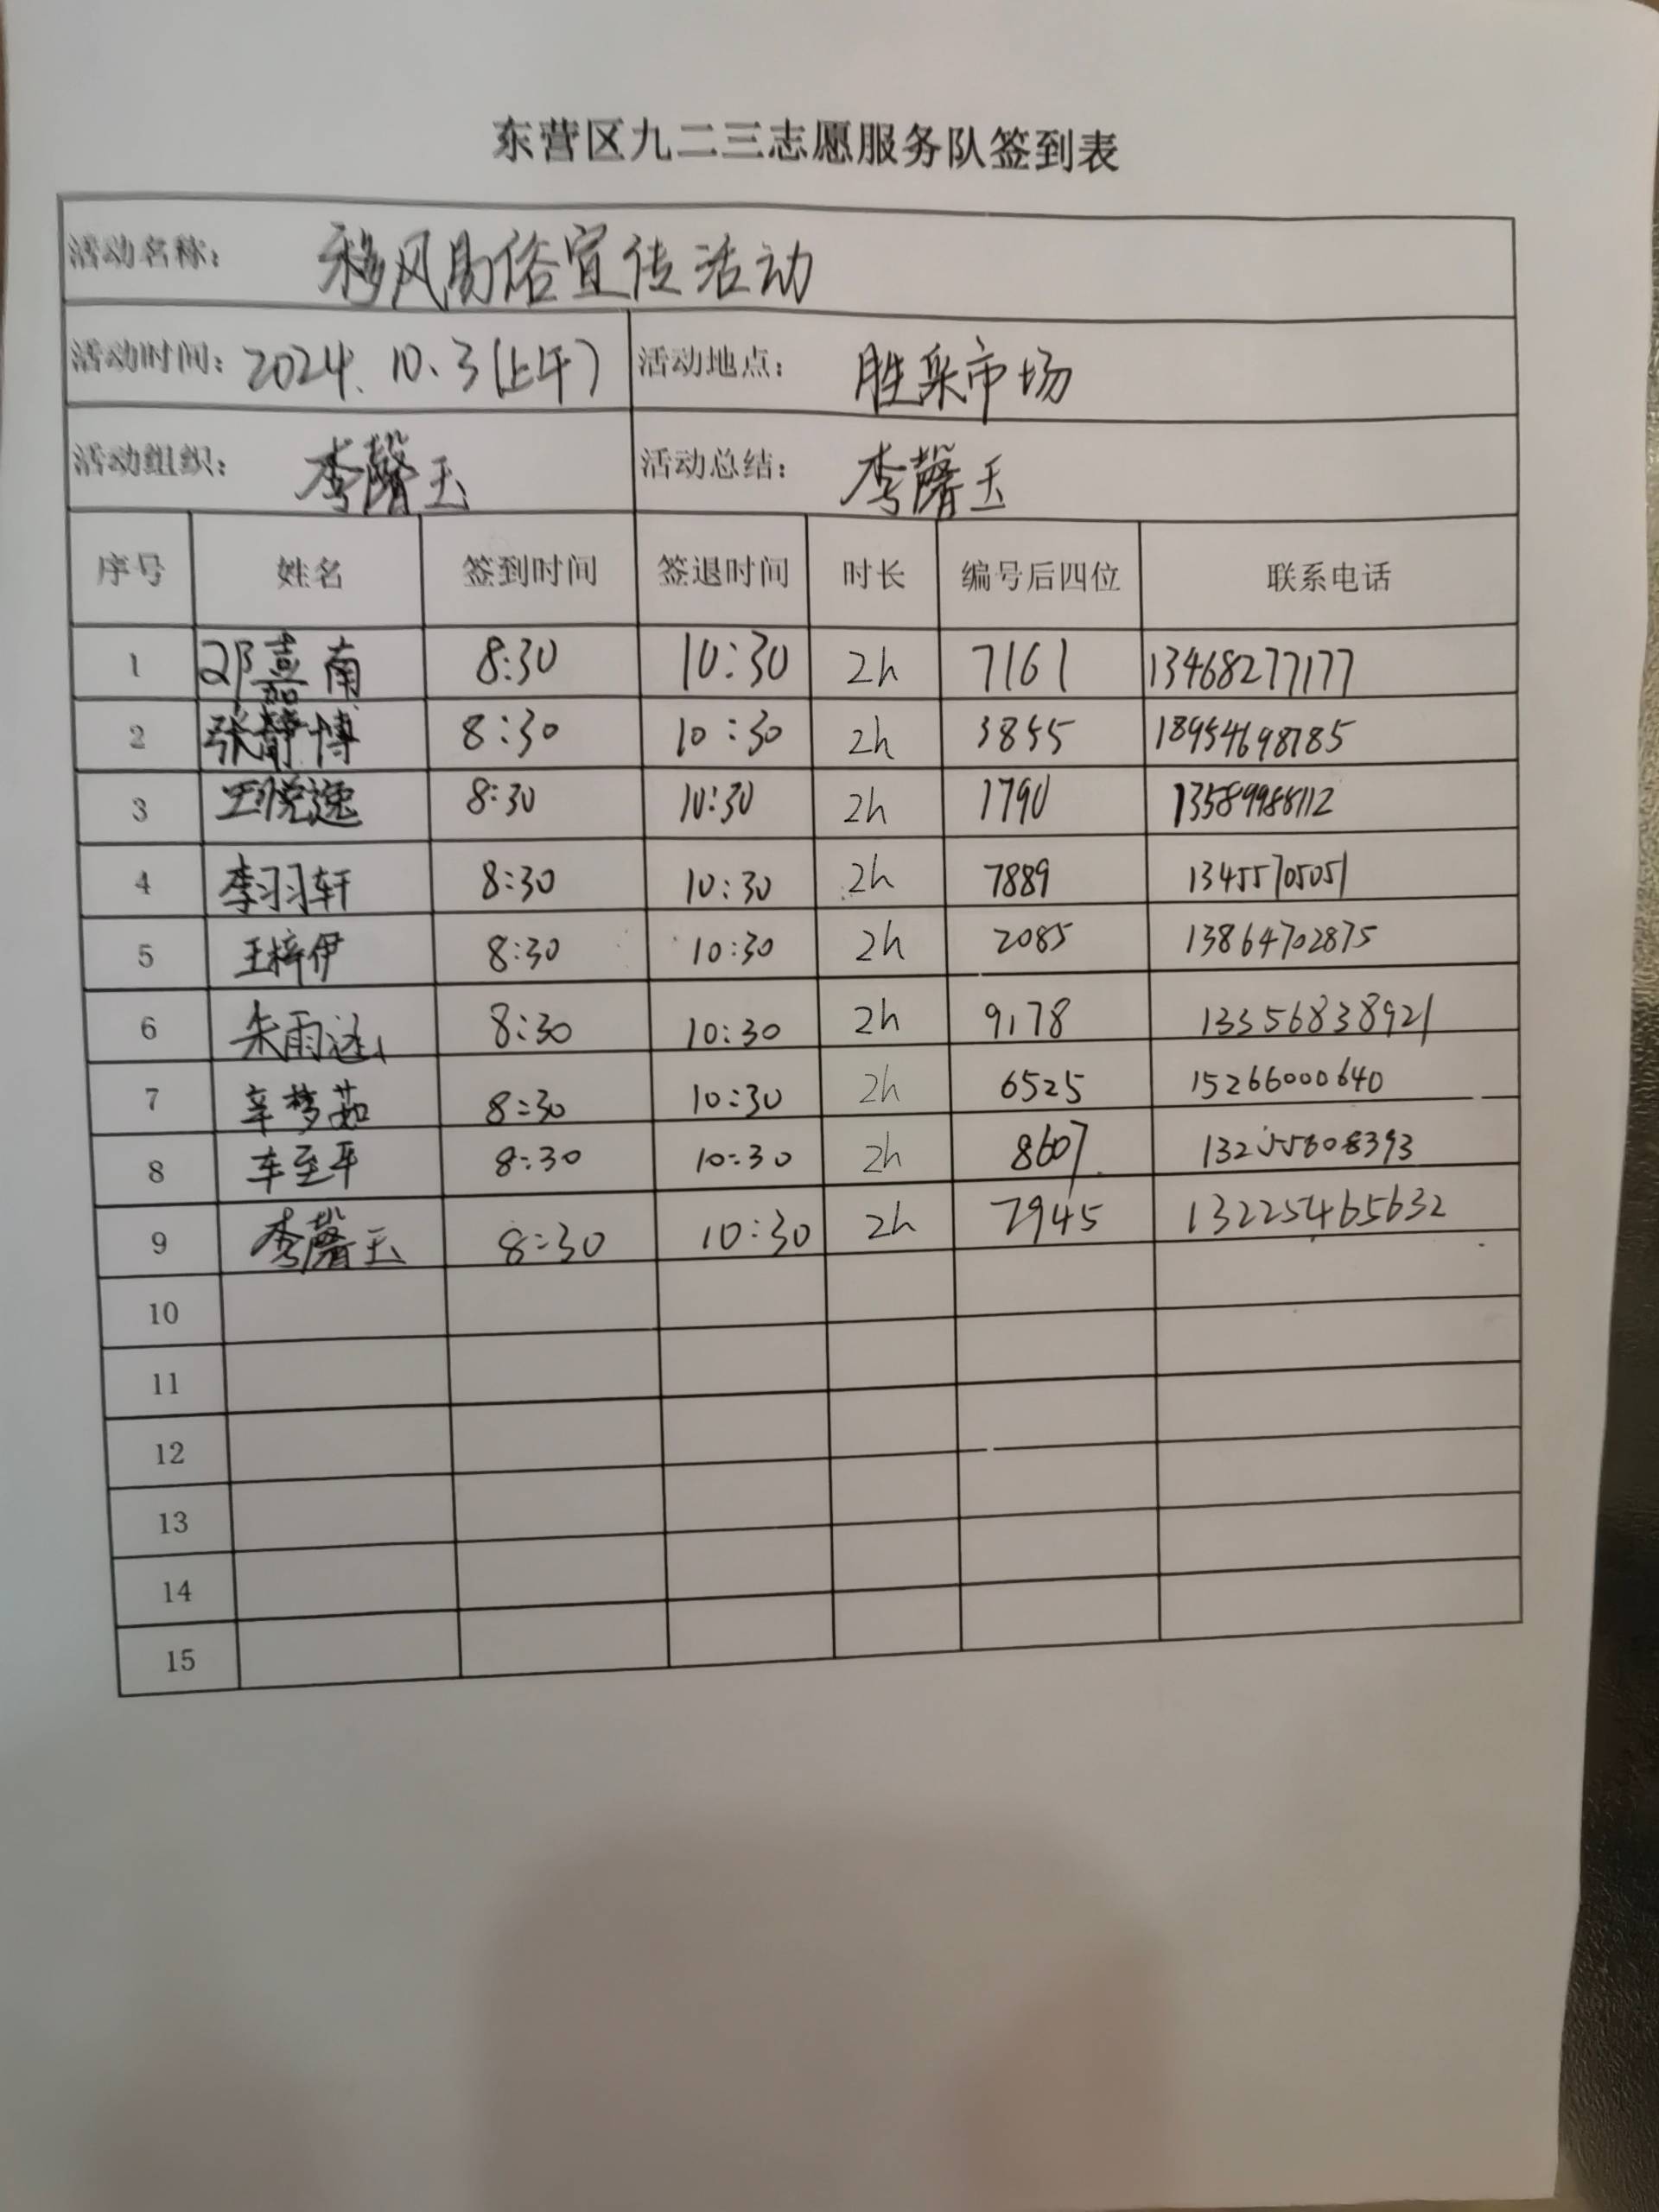 东营区九二三志愿服务队签到表
活动名称： 移风易俗宣传活动
活动时间：2024.10.3(上午) 活动地点： 胜采市场
活动组织： 李馨玉 活动总结： 李馨玉
序号 姓名 签到时间 签退时间 时长 编号后四位 联系电话
1 邵嘉南 8:30 10:30 2h 7161 13468277177
2 张静博 8:30 10:30 2h 3855 18954698785
3 王悦逸 8:30 10:30 2h 1790
4 李羽轩 8:30 10:30 2h 7889 13455705051
5 王梓伊 8:30 10:30 2h 2085 13864702875
6 朱雨涵 8:30 10:30 2h 9178 13356838921
7 辛梦茹 8:30 10:30 2h 6525 15266000640
8 车至平 8:30 10:30 2h 8607
9 李馨玉 8:30 10:30 2h 7945 13225465632
10
11
12
13
14
15